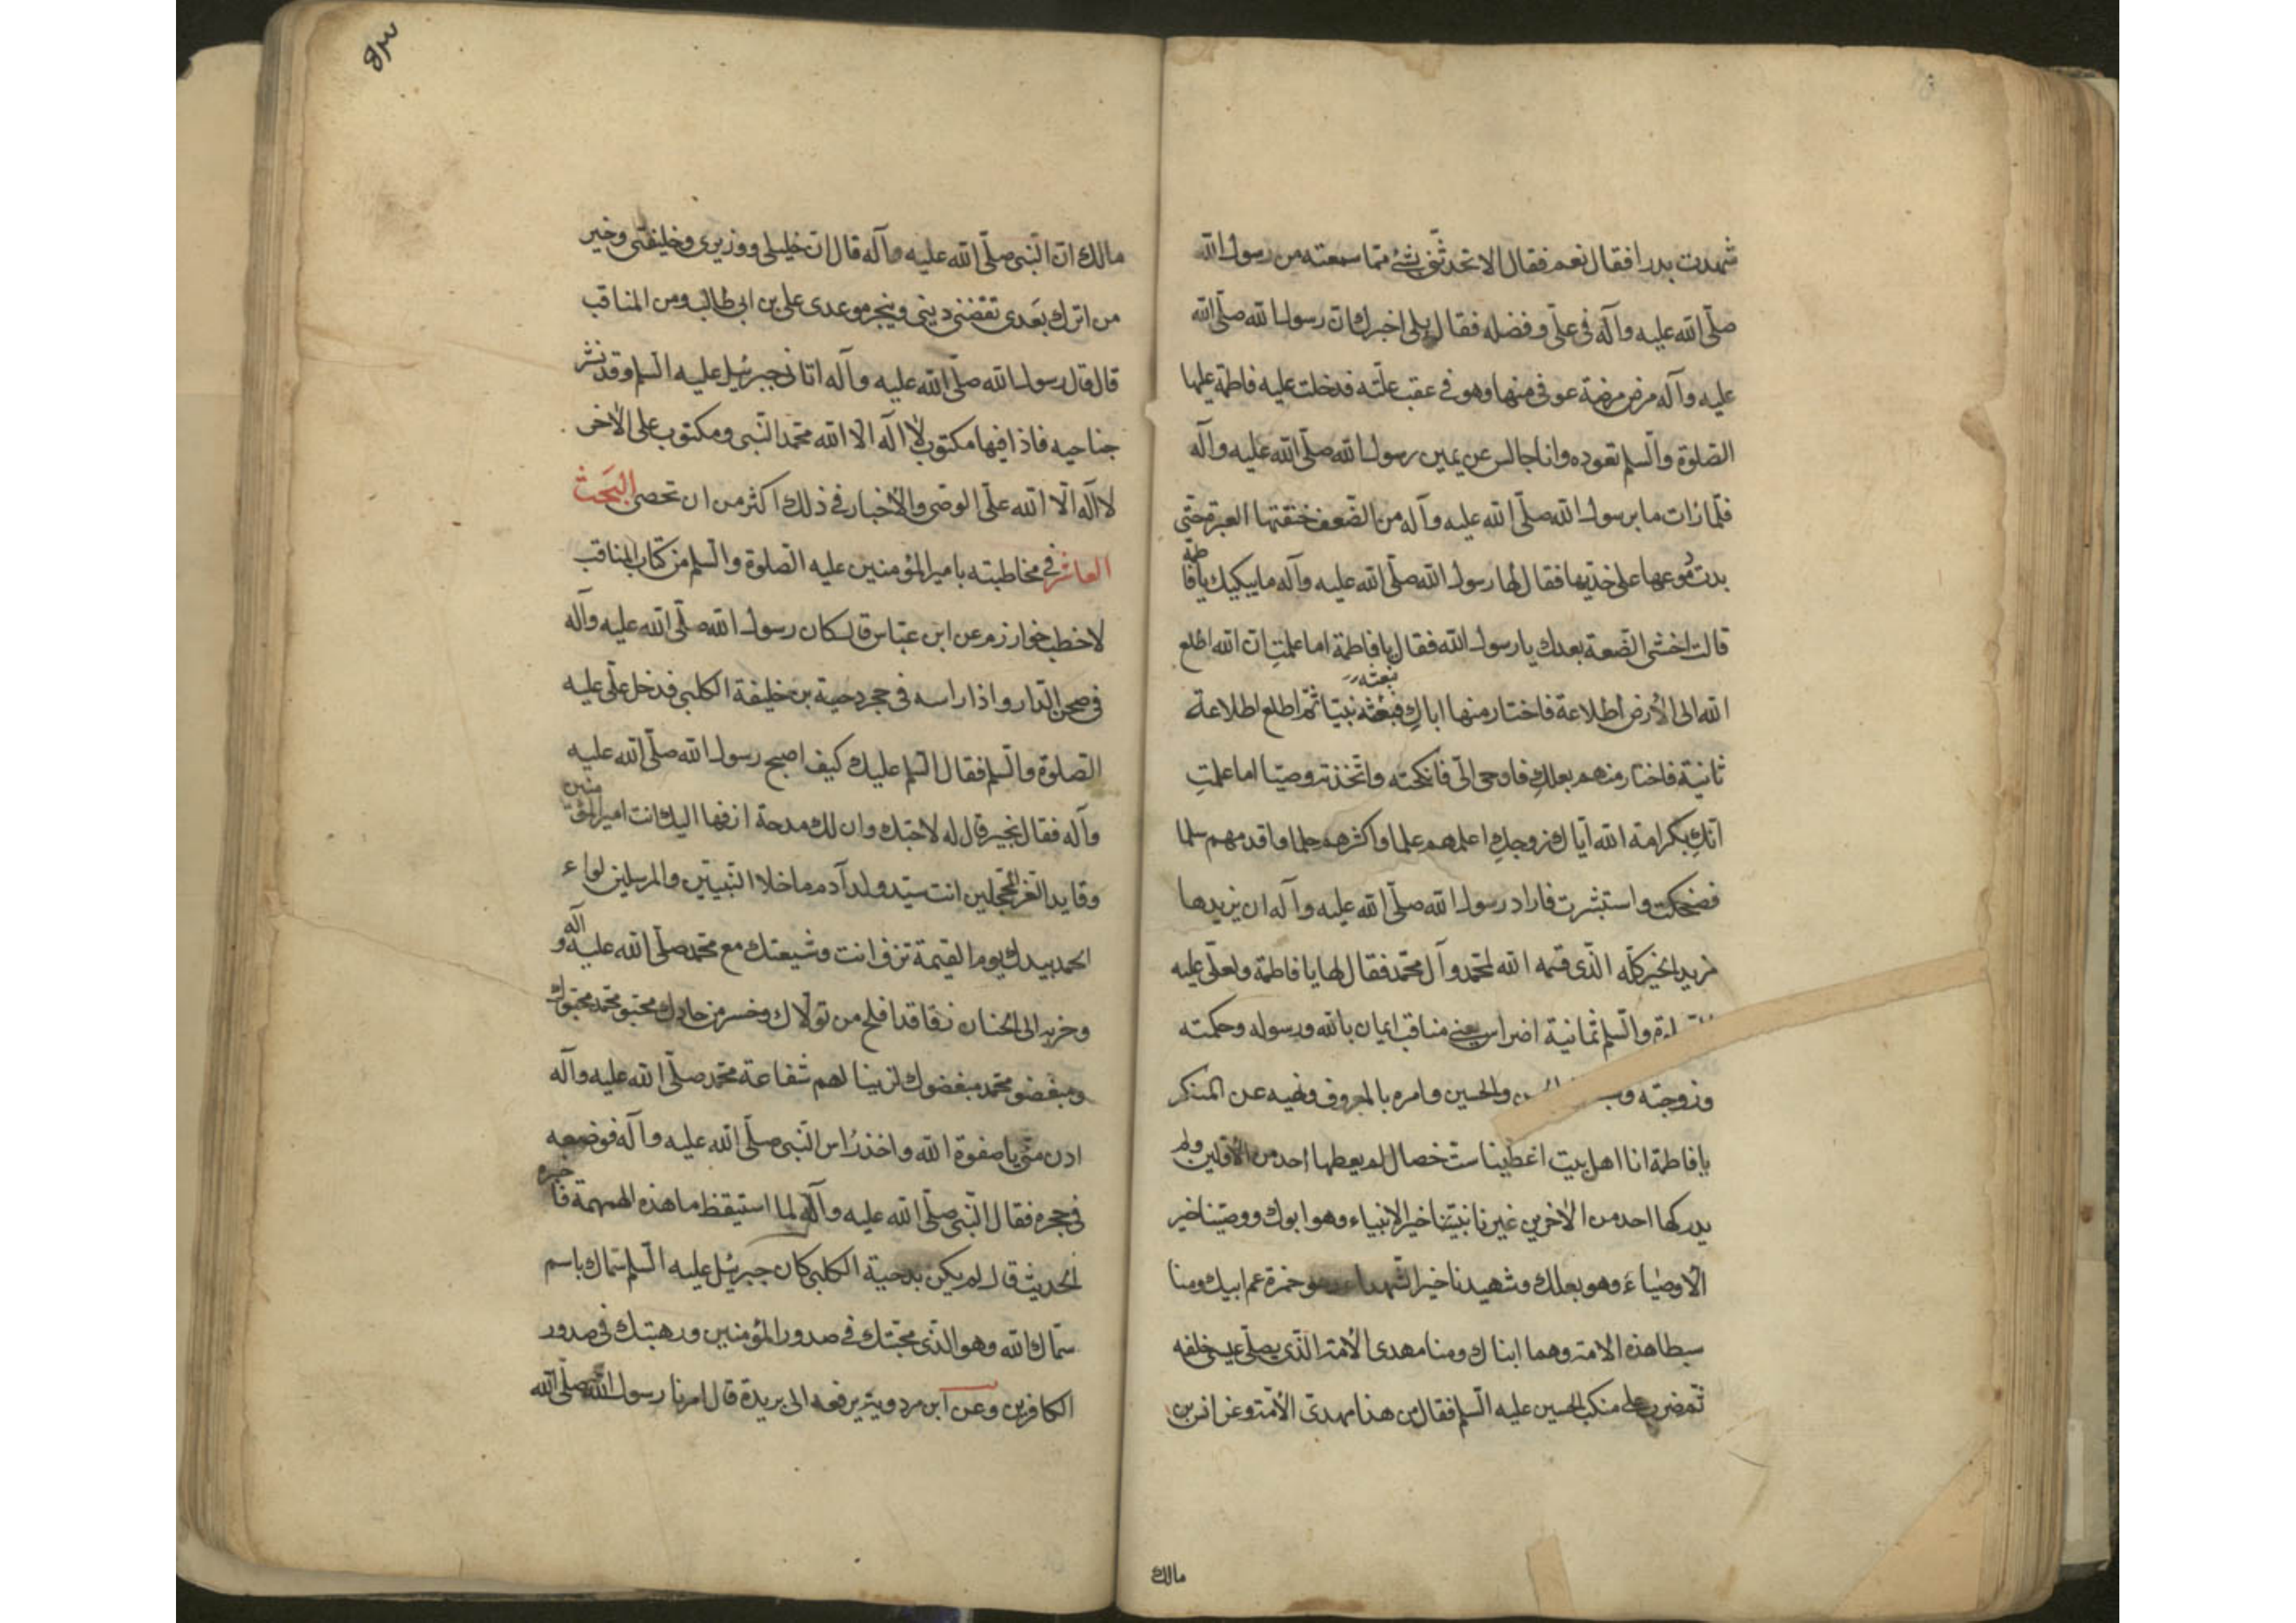 شهدت بدرا فقال نعم فقال الا تحدثني بشئ مما سمعته من رسول الله
صلّى الله عليه وآله في عليّ وفضله فقال بلى اخبرك ان رسول الله صلّى الله
عليه وآله مرض مرضة عوفى منها وهو في عقب علّته فدخلت عليه فاطمة عليها
الصّلوة والسّلم تعوده وانا جالس عن يمين رسول الله صلّى الله عليه وآله
فلمّا رات ما برسول الله صلّى الله عليه وآله من الضّعف خنقتها العبرة حتّى
بدت دموعها على خدّيها فقال لها رسول الله صلّى الله عليه وآله ما يبكيك يا فاطمة
قالت اخشى الضّيعة بعدك يا رسول الله فقال يا فاطمة اما علمتِ ان الله اطلع
الله الى الأرض اطلاعة فاختار منها اباكِ فبعثه نبيّا ثمّ اطلع اطلاعة
ثانية فاختار منهم بعلكِ فاوحى الىّ فانكحته واتّخذته وصيّا اما علمتِ
انّكِ بكرامة الله ايّاك زوجكِ اعلمهم علما واكثرهم حلما واقدمهم سلما
فضحكت واستبشرت فاراد رسول الله صلّى الله عليه وآله ان يزيدها
مزيد الخير كلّه الّذى قسمه الله لمحمّد وآل محمّد فقال لها يا فاطمة ولعلّى عليه
والسّلم ثمانية اضراس يعنى مناقب ايمان بالله ورسوله وحكمته
وزوجته والحسين وامره بالمعروف ونهيه عن المنكر
يا فاطمة انا اهل بيت اعطينا ست خصال لم يعطها احد من الأوّلين ولم
يدركها احد من الآخرين غيرنا نبيّنا خير الانبياء وهو ابوك ووصيّنا خير
الأوصياءَ وهو بعلك وشهيدنا خير الشّهداء وهو حمزة عم ابيك ومنا
سبطا هذه الامّة وهما ابناك ومنا مهدى الأمّة الّذى يصلّى عيسى خلفه
ثمّ ضرب على منكب الحسين عليه السّلم فقال من هذا مهدىّ الأمّة وعن انس بن
مالك
٨٣
مالك انّ النّبى صلّى الله عليه وآله قال انّ خليلى ووزيرى وخليفتى وخير
من اترك بعدى يقضى دينى وينجز موعدى على بن ابى طالب ومن المناقب
قال قال رسول الله صلّى الله عليه وآله اتانى جبرئيل عليه السّلم وقد نشر
جناحيه فاذا فيها مكتوب لا اله الّا الله محمّد النّبى ومكتوب على الآخر
لا اله الّا الله علىّ الوصى والأخبار في ذلك اكثر من ان تحصى البَحث
العاشر في مخاطبته بامير المؤمنين عليه الصّلوة والسّلم من كتاب المناقب
لاخطب خوارزم عن ابن عبّاس قال كان رسول الله صلّى الله عليه وآله
فى صحن الدّار واذا راسه فى حجر دحية بن خليفة الكلبى فدخل علىّ عليه
الصّلوة والسّلم فقال السّلم عليك كيف اصبح رسول الله صلّى الله عليه
وآله فقال بخير قال له لاحبّك وان لك مدحة ازفها اليك انت امير المؤمنين
وقايد الغرّ المحجّلين انت سيّد ولد آدم ما خلا النّبيّين والمرسلين لواء
الحمد بيدك يوم القيمة تزف انت وشيعتك مع محمّد صلّى الله عليه وآله
وحزبه الى الجنان زفا قد افلح من تولّاك وخسر من محبّو محمّد محبّوك
ومبغضو محمّد مبغضوك لن ينالهم شفاعة محمّد صلّى الله عليه وآله
ادن منّى يا صفوة الله واخذ رأس النّبى صلّى الله عليه وآله فوضعه
فى حجره فقال النّبى صلّى الله عليه وآله لما استيقظ ما هذه الهمهمة فاخبره
الحديث قال لم يكن بدحية الكلبى كان جبرئيل عليه السّلم سمّاك باسم
سمّاك الله وهو الّذى محبّتك في صدور المؤمنين ورهبتك فى صدور
الكافرين وعن ابن مردويه يرفعه الى بريدة قال امرنا رسول الله صلّى الله